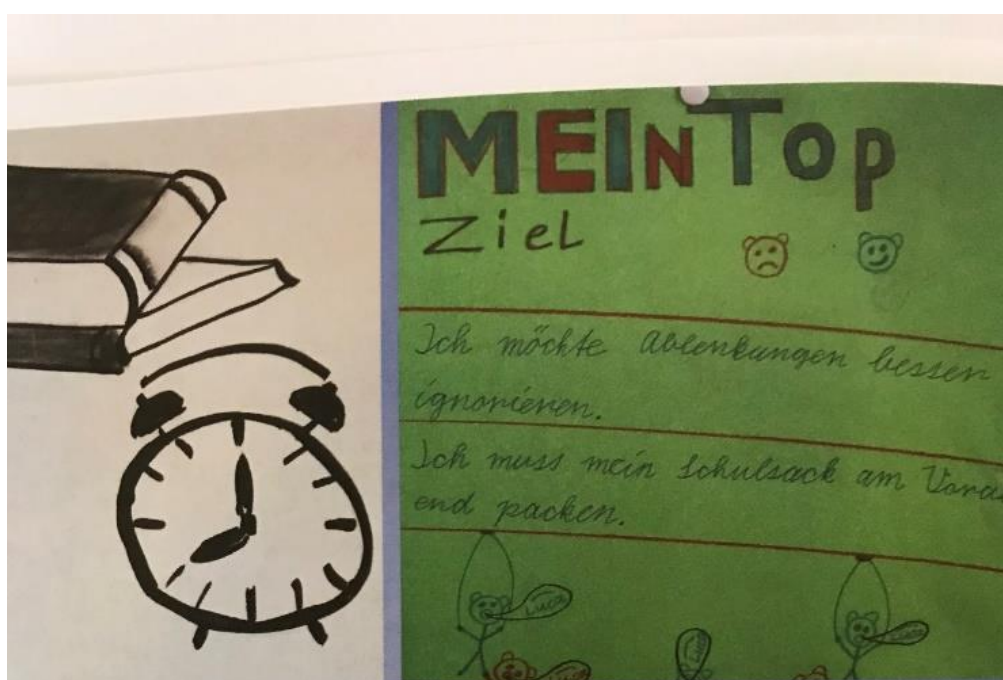 MEIN TOP
ZieL
Ich möchte Ablenkungen besser
ignorieren.
Ich muss mein Schulsack am Vora
end packen.
Luca
Luca